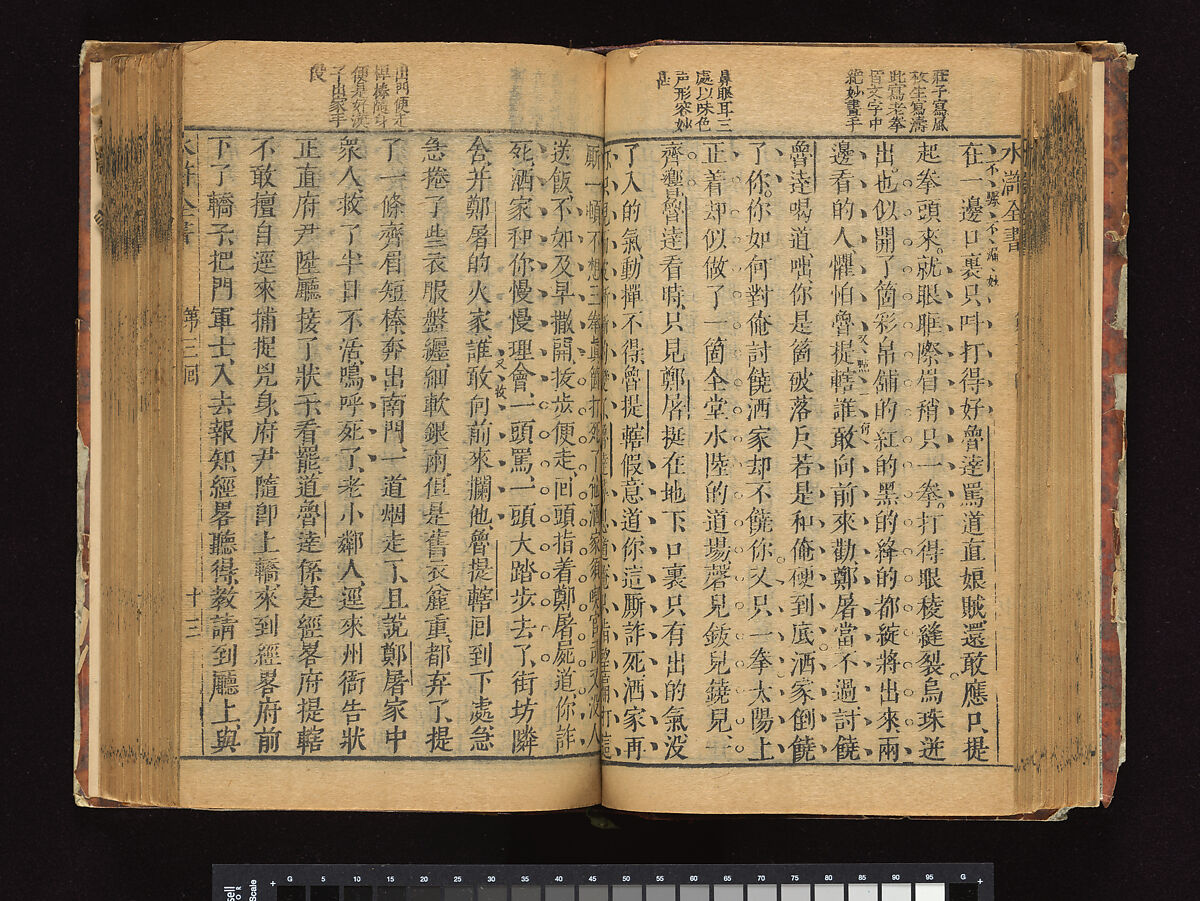 水滸全書
莊子寫風
枚生寫濤
此寫老拳
皆文字中
絕妙畫手
鼻眼耳三
處以味色
声形容妙
甚
在一邊口裏只叫打得好魯達罵道直娘賊還敢應口提
起拳頭來就眼眶際眉稍只一拳打得眼稜縫裂烏珠迸
出也似開了箇彩帛舖的紅的黑的絳的都綻將出來兩
邊看的人懼怕魯提轄誰敢向前來勸鄭屠當不過討饒
魯達喝道咄你是箇破落戶若是和俺硬到底洒家倒饒
了你你如何對俺討饒洒家却不饒你又只一拳太陽上
正着却似做了一箇全堂水陸的道場磬兒鈸兒鐃兒一
齊響魯達看時只見鄭屠挺在地下口裏只有出的氣沒
了入的氣動撣不得魯提轄假意道你這厮詐死洒家再
的變了魯達尋思道俺只指望痛打這
出門便走
桿棒隨身
便是好漢
子出家手
段
厮一頓不想三拳眞箇打死了他洒家須喫官司又沒人
送飯不如及早撒開拔步便走回頭指着鄭屠屍道你詐
死洒家和你慢慢理會一頭罵一頭大踏步去了街坊隣
舍并鄭屠的火家誰敢向前來攔他魯提轄回到下處急
急捲了些衣服盤纏細軟銀兩但是舊衣麄重都弃了提
了一條齊眉短棒奔出南門一道烟走了且說鄭屠家中
衆人救了半日不活鳴呼死了老小鄰人逕來州衙告狀
正直府尹陞廳接了狀子看罷道魯達係是經畧府提轄
不敢擅自逕來捕捉兇身府尹隨卽上轎來到經畧府前
下了轎子把門軍士入去報知經畧聽得教請到廳上與
第三回
十三